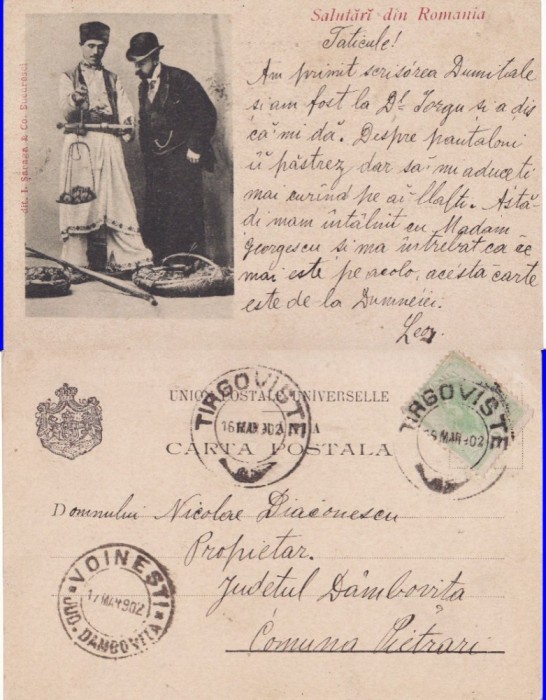 Salutări din Romania
Taticule!
Am primit scrisórea Dumitale
si am fost la Dl Iorgu si a dis
că mi dă. Despre pantaloni
ii păstrez dar să-mi aduceti
mai curind pe ai-llalti. Astă-
di mam întâlnit cu Madam
Georgescu si ma întrebat ca ce
mai este pe acolo, acesta carte
este de la Dumneiei.
Leon
Edit. I. Saraga & Co. Bucuresci
UNION POSTALE UNIVERSELLE
CARTA POSTALA
TIRGOVISTE
16 MAR 902
TIRGOVISTE
16 MAR 902
Domnului Nicolae Diaconescu
Propietar.
Judetul Dâmbovita
Comuna Pietrari
VOINESTI
17 MAR 902
JUD. DAMBOVITA